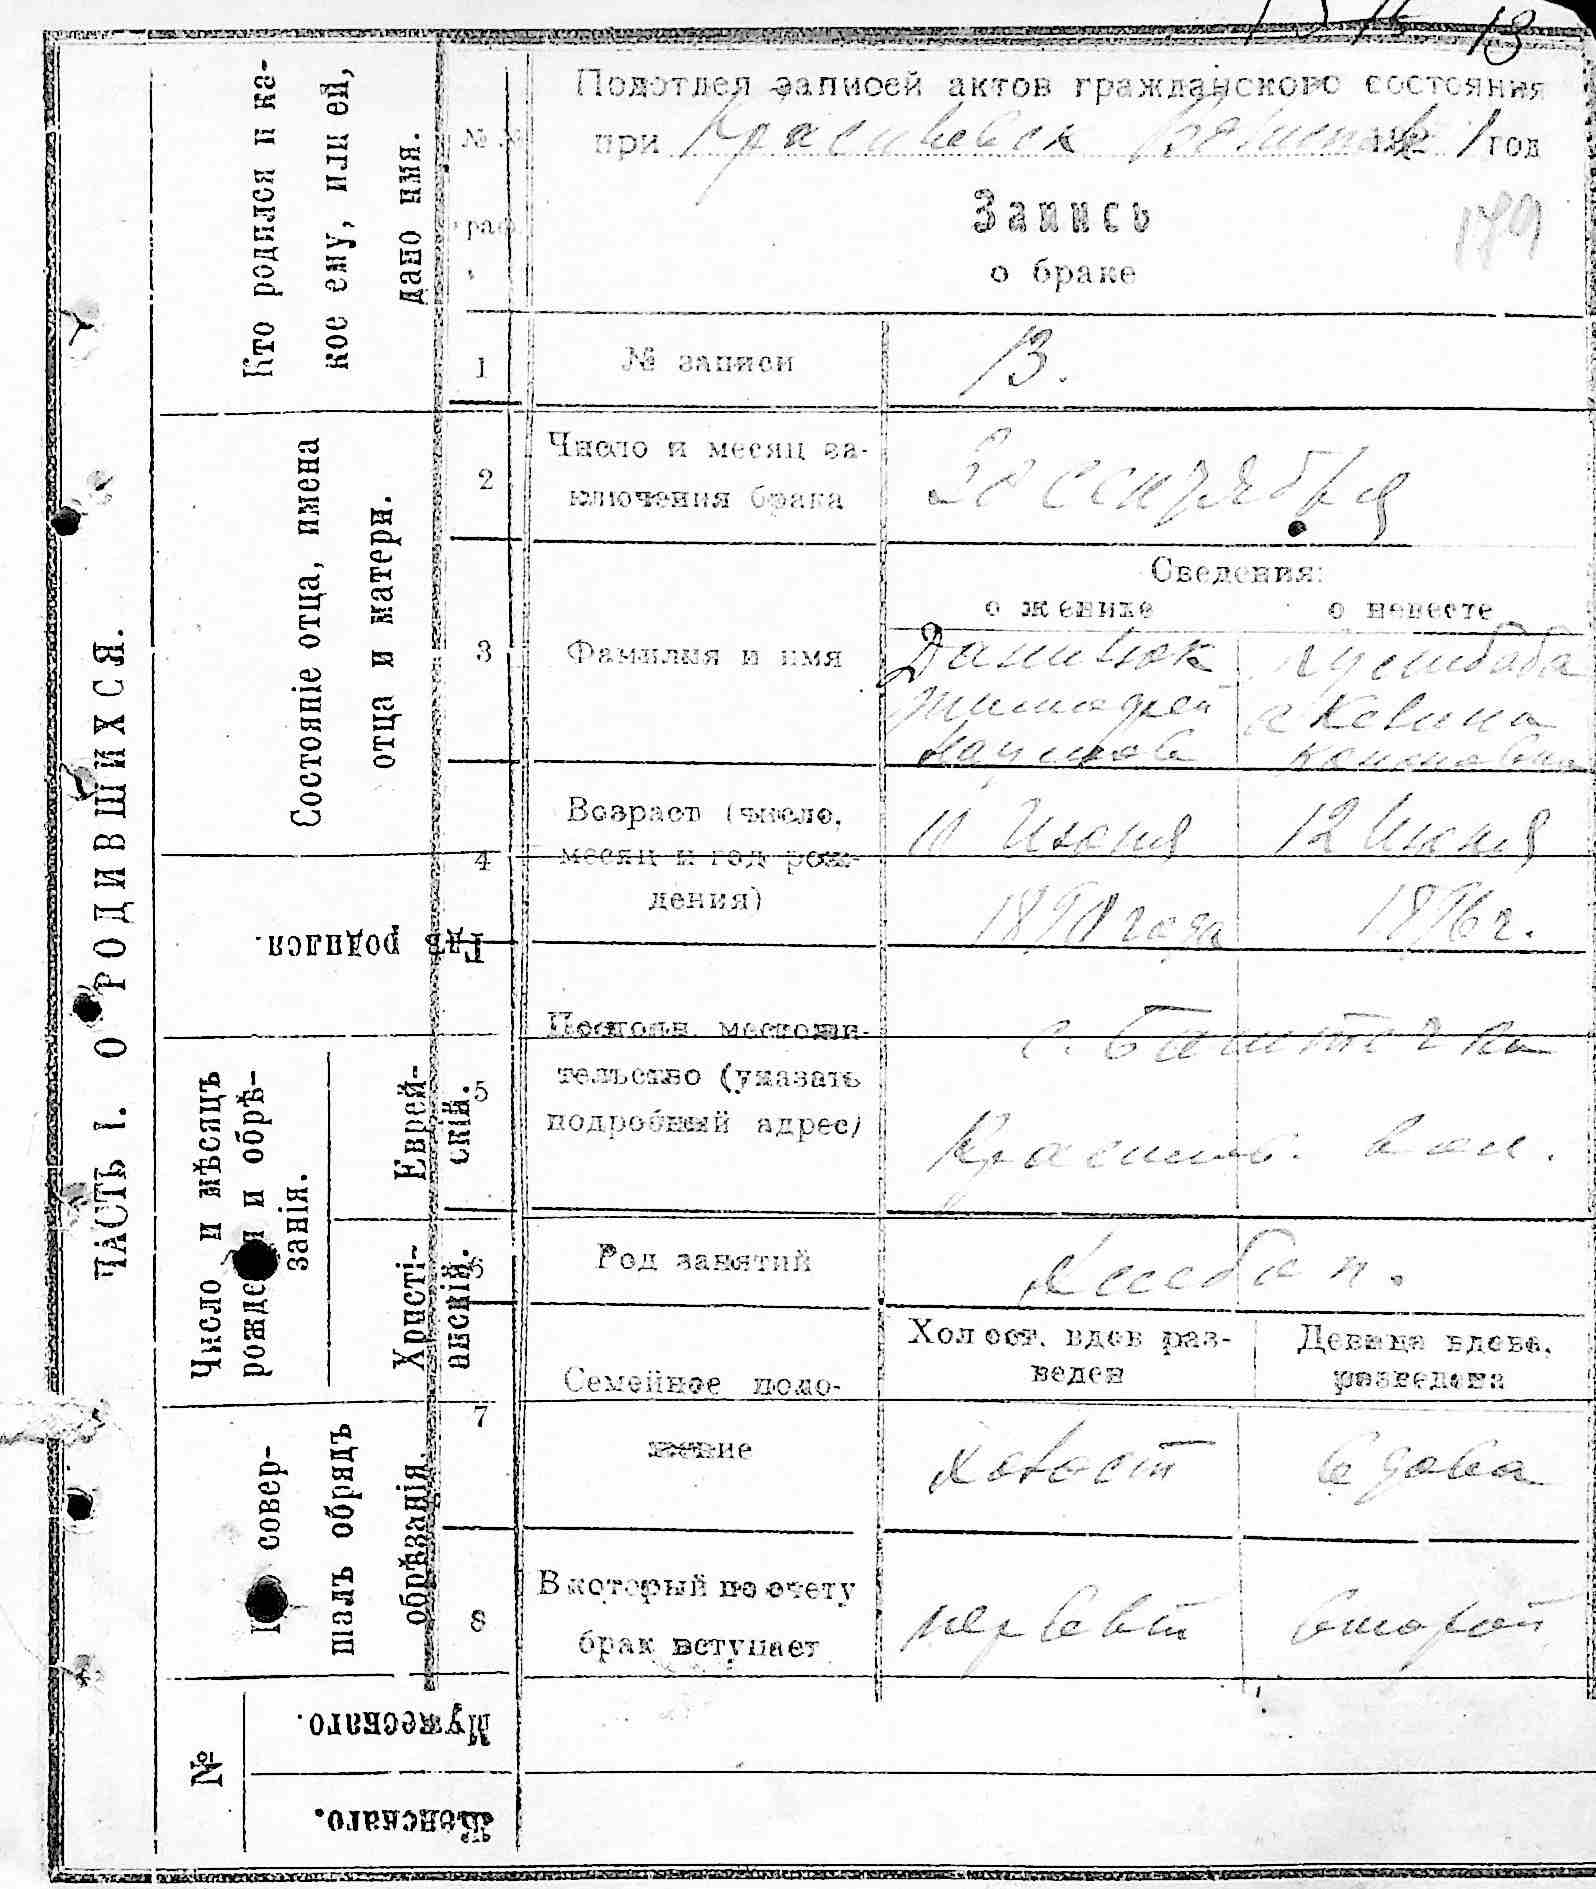 13
Подотдел записей актов гражданского состояния
при 192 1 год
Запись
о браке
189
№№
граф.
1
№ записи
13.
2
Число и месяц за-
ключения брака
20 сентября
Сведения:
о женихе
о невесте
3
Фамилия и имя
Данилюк
Тимофей
Наумов
Акелина
Кононовна
4
Возраст (число,
месяц и год рож-
дения)
10 Июня
1898 года
12 Июня
1896 г.
5
Постоян. местожи-
тельство (указать
подробный адрес)
с. Баштечка
вол.
6
Род занятий
Хлебоп.
7
Семейное поло-
жение
Холост. вдов раз-
веден
Девица вдова,
разведена
холост
вдова
8
В который по счету
брак вступает
первый
второй
ЧАСТЬ I. О РОДИВШИХСЯ.
Кто родился и ка-
кое ему, или ей,
дано имя.
Состояніе отца, имена
отца и матери.
Гдѣ родился.
Число и мѣсяцъ
рожденія и обрѣ-
занія.
Еврей-
скій.
Христі-
анскій.
Кто совер-
шалъ обрядъ
обрѣзанія.
№
Мужескаго.
Женскаго.